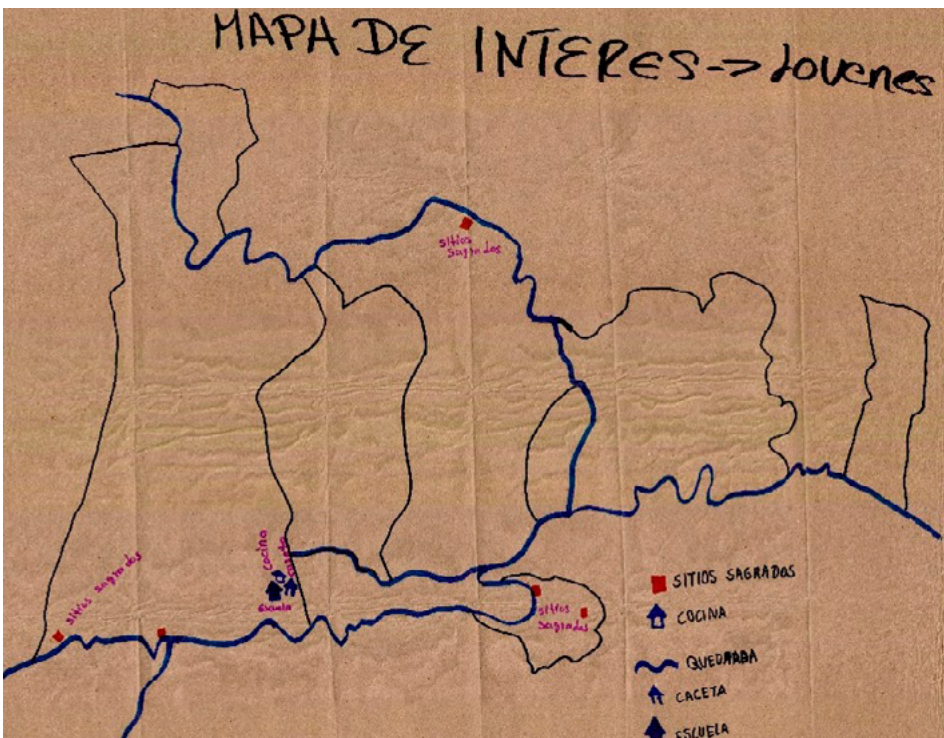 MAPA DE INTERES -> Jovenes
sitios
Sagrados
Sitios sagrados
cocina
caseta
Escuela
sitios
sagrados
SITIOS SAGRADOS
COCINA
QUEBRADA
CACETA
ESCUELA